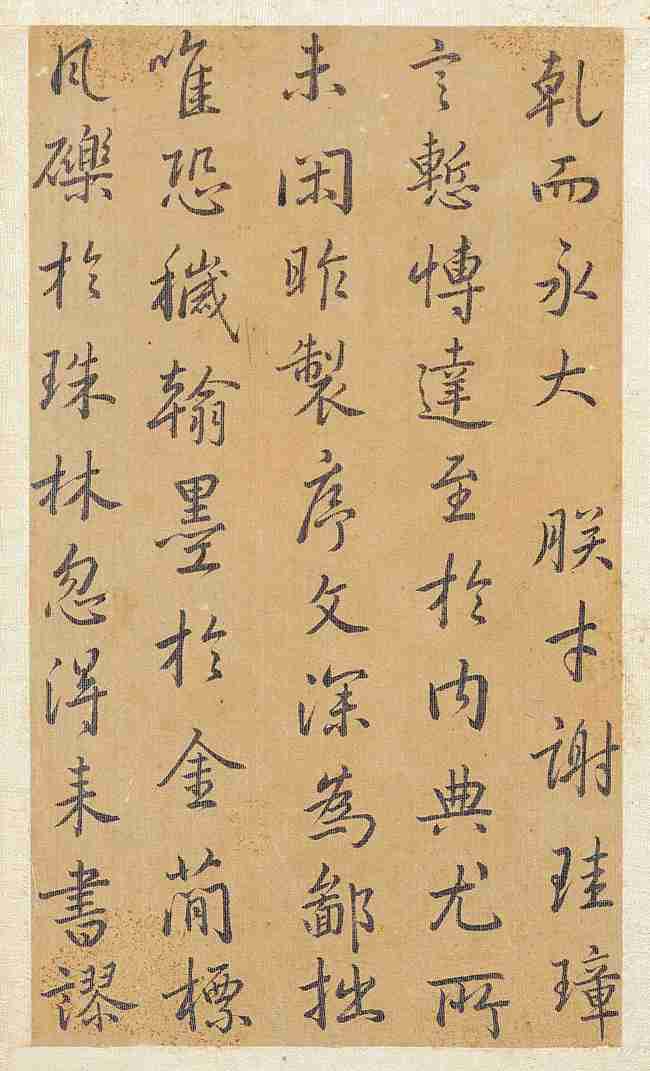 乾而永大 朕才謝珪璋
言慙博達至於內典尤所
未閑昨製序文深為鄙拙
唯恐穢翰墨於金簡標
凡礫於珠林忽得来書謬